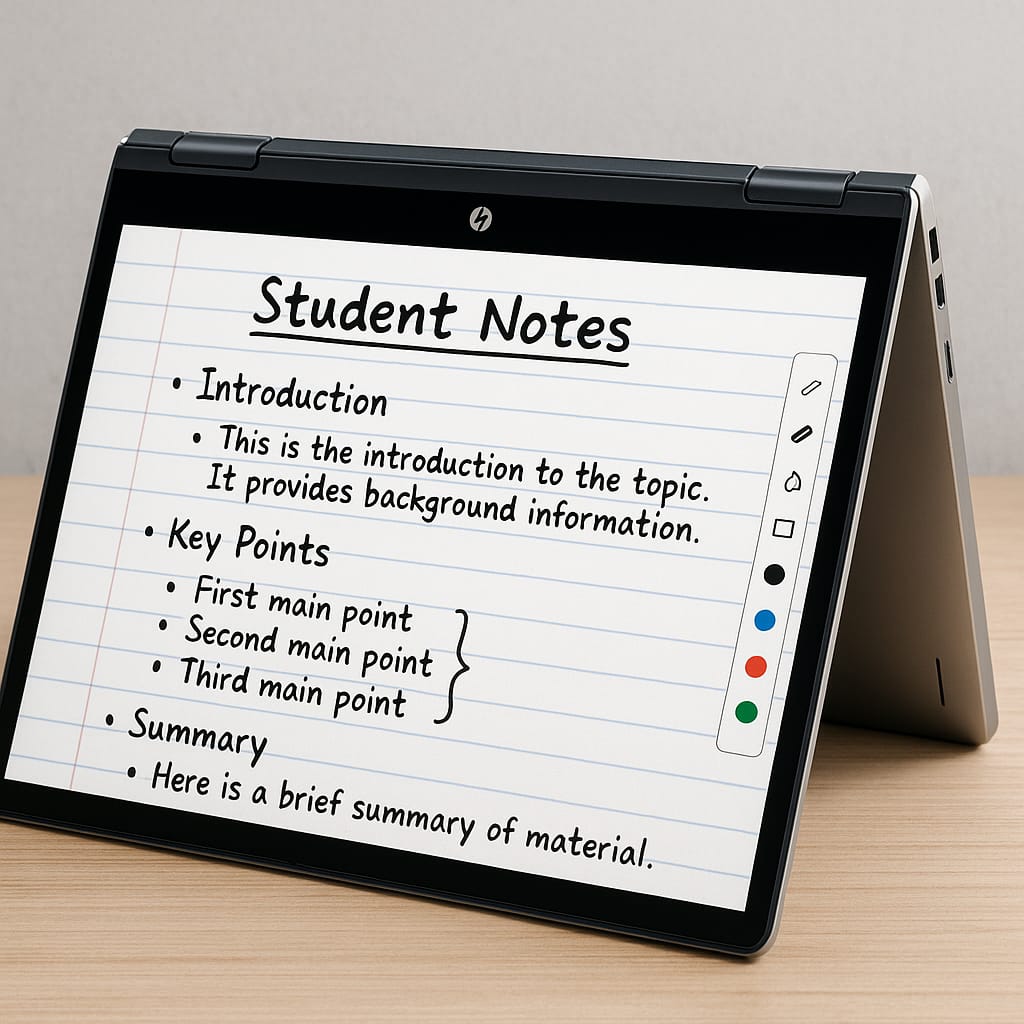 Student Notes
• Introduction
• This is the introduction to the topic.
It provides background information.
• Key Points
• First main point
• Second main point
• Third main point
• Summary
• Here is a brief summary of material.